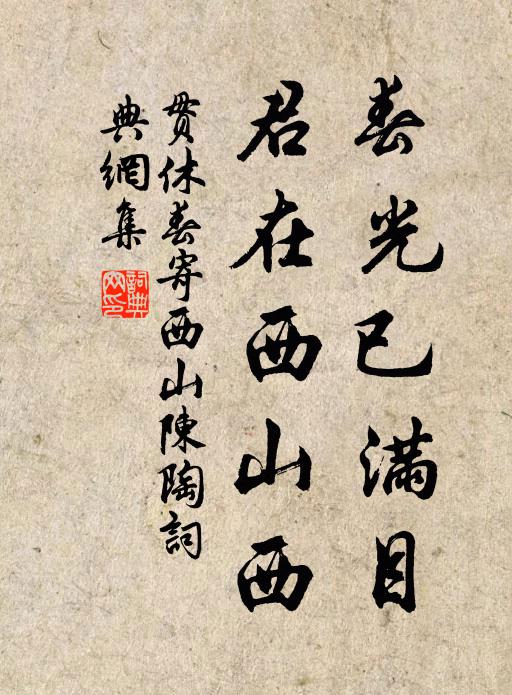 春光已滿目
君在西山西
貫休春寄西山陳陶詞
典網集
詞典
网印